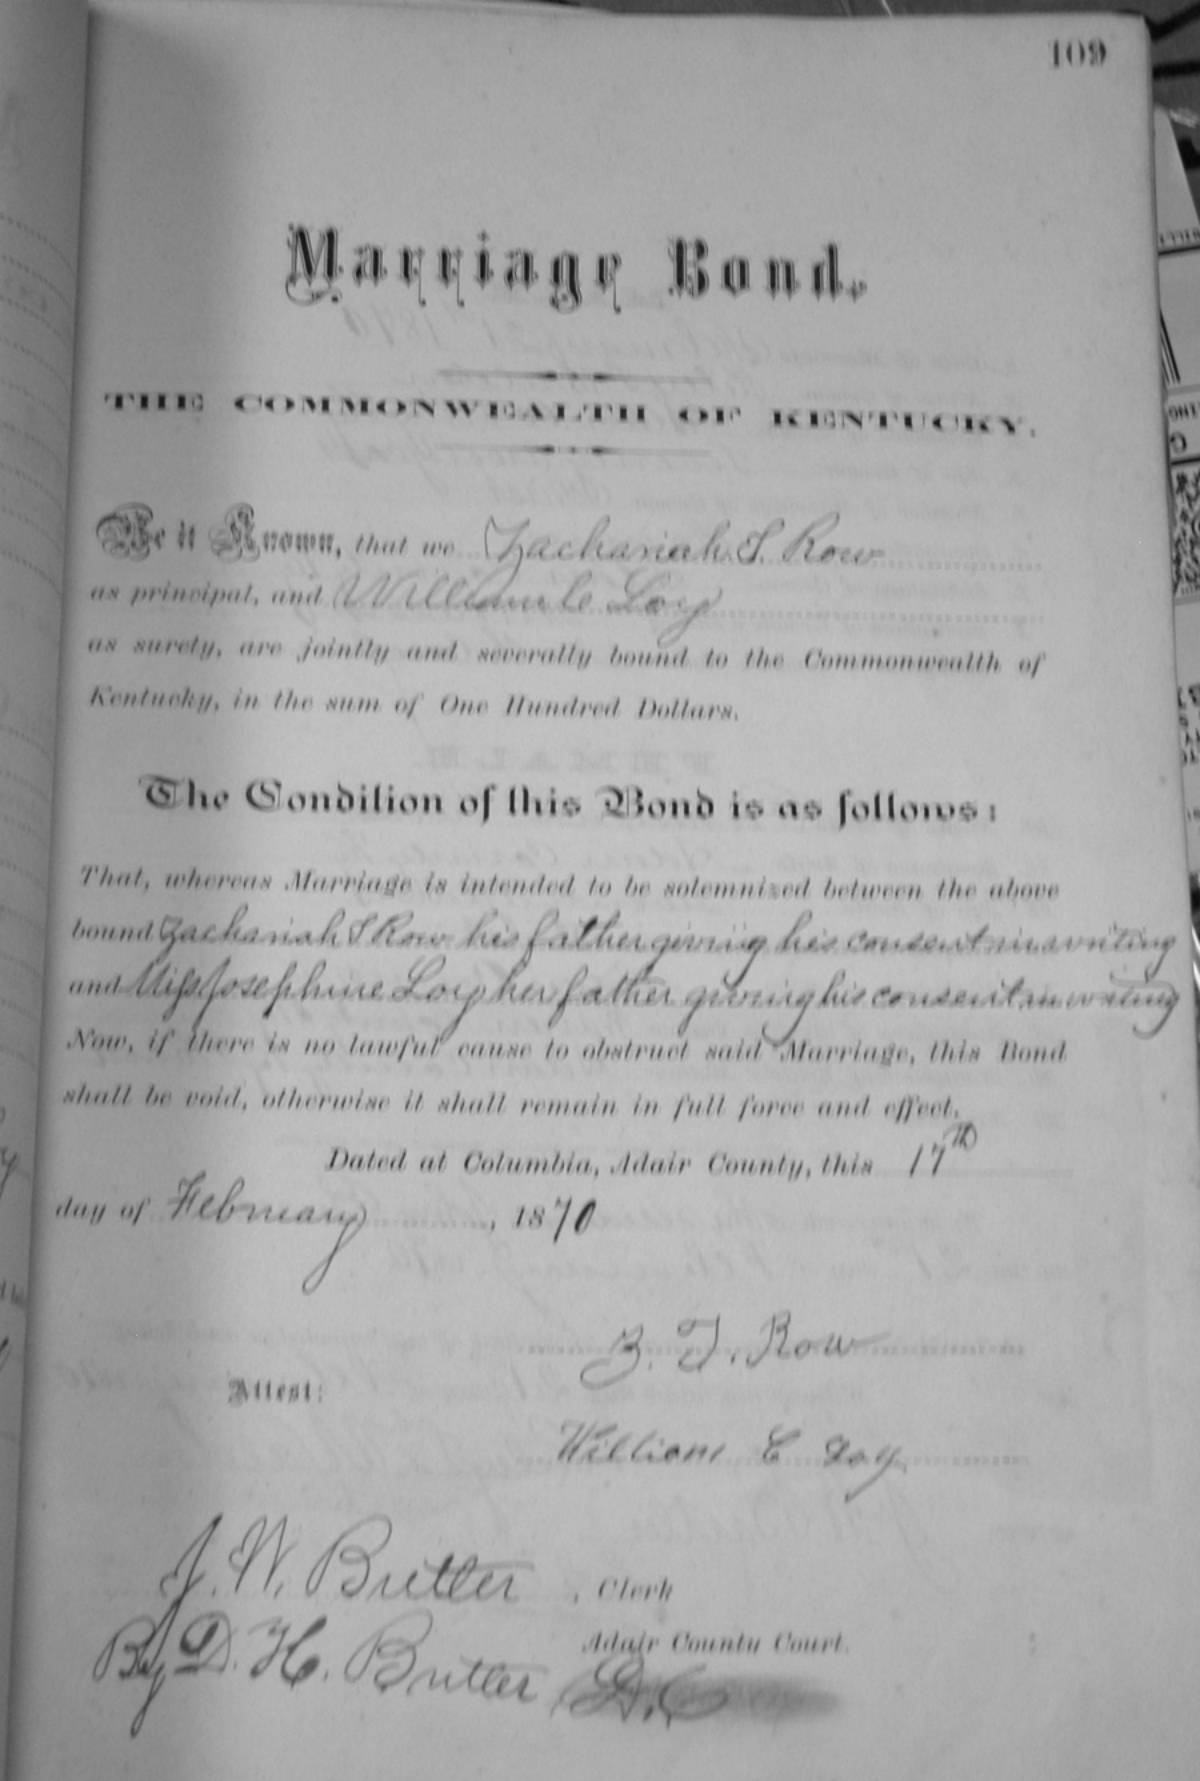 109
Marriage Bond.
THE COMMONWEALTH OF KENTUCKY.
Be it Known, that we Zachariah T. Row
as principal, and William C Loy
as surety, are jointly and severally bound to the Commonwealth of
Kentucky, in the sum of One Hundred Dollars.
The Condition of this Bond is as follows:
That, whereas Marriage is intended to be solemnized between the above
bound Zachariah T Row his father giving his consent in writing
and Miss Josephine Loy her father giving his consent in writing
Now, if there is no lawful cause to obstruct said Marriage, this Bond
shall be void, otherwise it shall remain in full force and effect.
Dated at Columbia, Adair County, this 17th
day of February, 1870
Z. T. Row
Attest:
William C Loy
J. W. Butler, Clerk
Adair County Court.
By D. H. Butler D.C